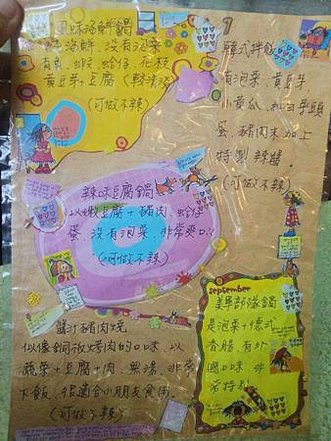 風味海鮮鍋
海鮮，沒有泡菜
有魚、蝦、蛤仔、花枝
黃豆芽+豆腐
(可做不辣)
韓式拌飯
有泡菜、黃豆芽
小黃瓜
蛋、豬肉末加上
特製辣醬。
(可做不辣)
辣味豆腐鍋
以嫩豆腐+豬肉、蛤仔
蛋、沒有泡菜，非常爽口
(可做不辣)
醬汁豬肉燒
似像銅板烤肉的口味，以
蔬菜+豆腐+肉，無湯，非常
下飯，很適合小朋友食用。
(可做不辣)
september
美軍部隊鍋
是泡菜+德式
香腸，有
國口味，非
常特別